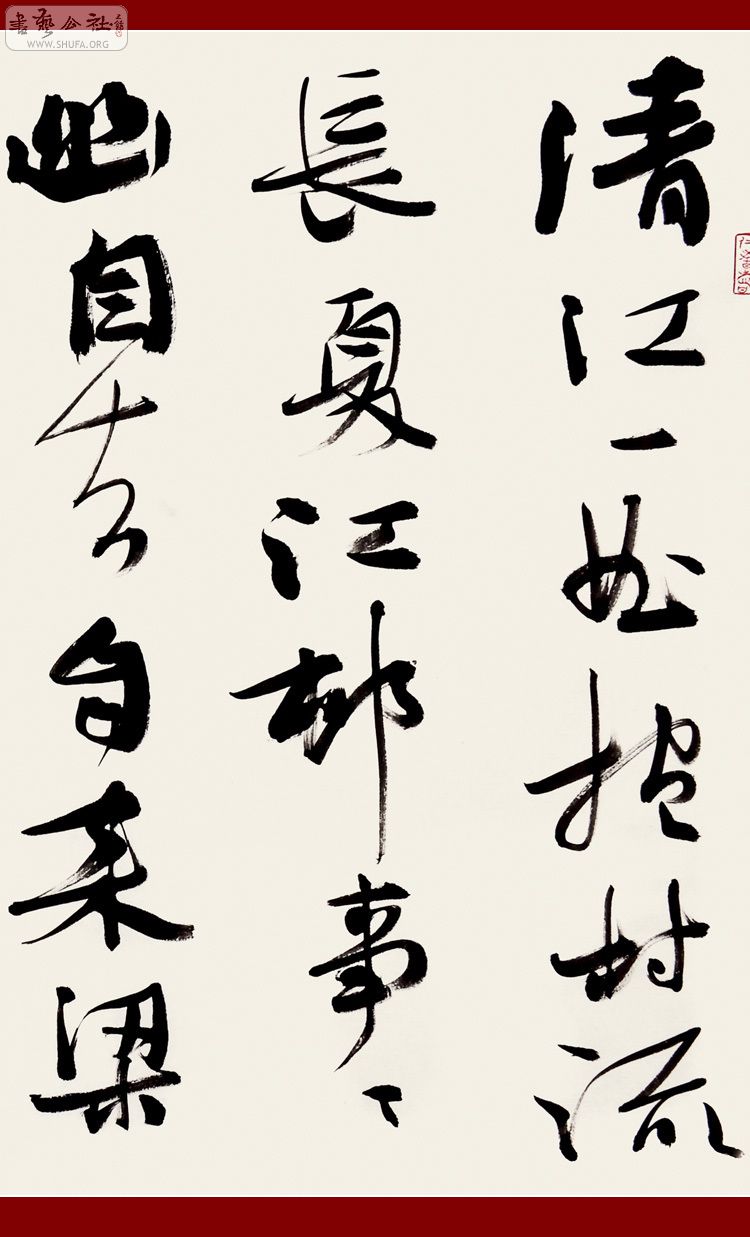 書藝公社
WWW.SHUFA.ORG
清江一曲抱村流
長夏江邨事々
幽自去自来梁